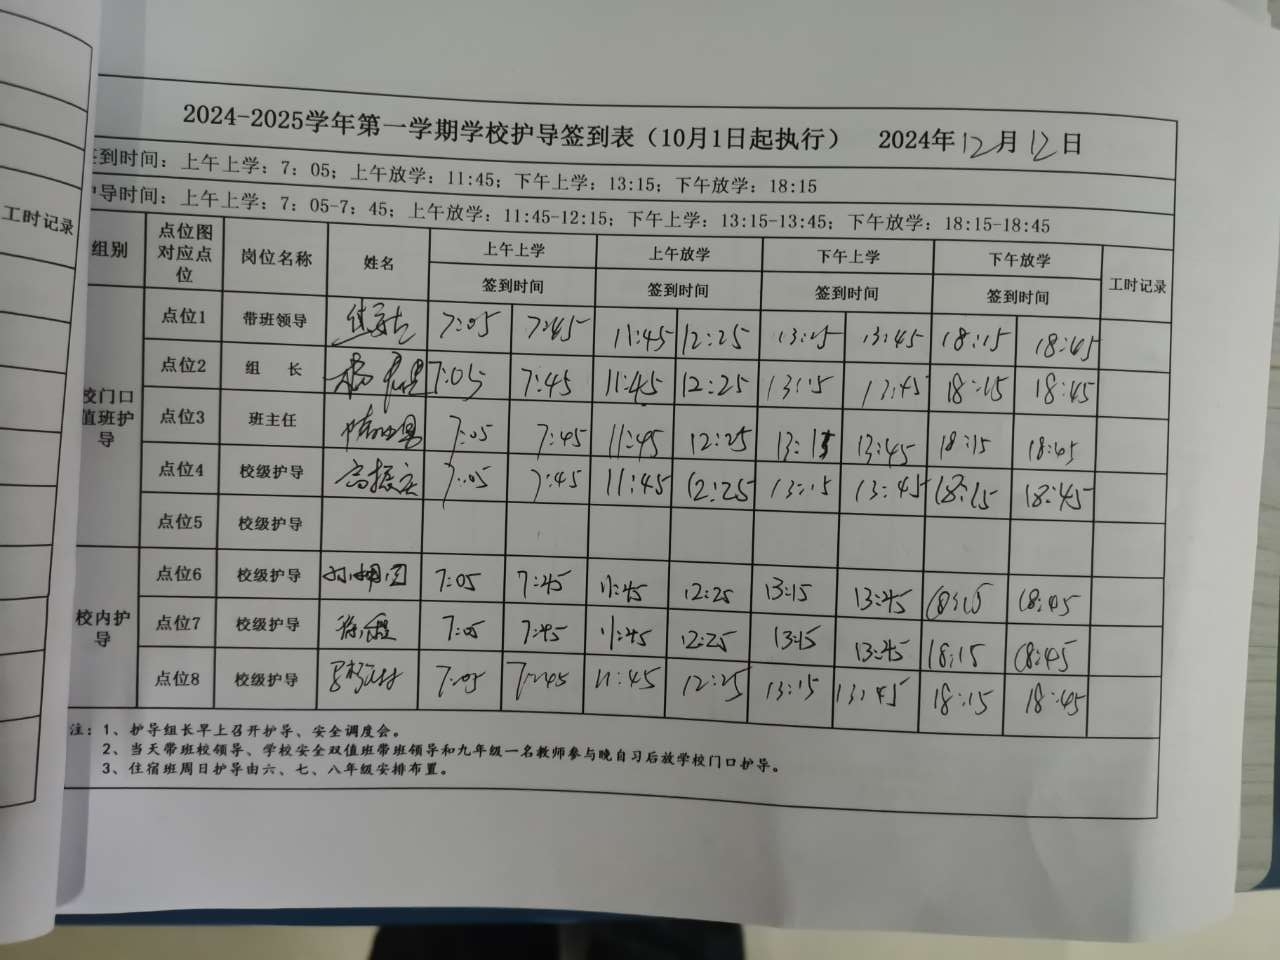 工时记录
2024-2025学年第一学期学校护导签到表（10月1日起执行） 2024年12月12日
签到时间：上午上学：7：05；上午放学：11:45；下午上学：13:15；下午放学：18:15
护导时间：上午上学：7：05-7：45；上午放学：11:45-12:15；下午上学：13:15-13:45；下午放学：18:15-18:45
组别 点位图对应点位 岗位名称 姓名 上午上学 上午放学 下午上学 下午放学 工时记录
签到时间 签到时间 签到时间 签到时间
校门口值班护导
点位1 带班领导 7:05 7:45 11:45 12:25 13:15 13:45 18:15 18:45
点位2 组 长 7:05 7:45 11:45 12:25 13:15 13:45 18:15 18:45
点位3 班主任 7:05 7:45 11:45 12:25 13:15 13:45 18:15 18:45
点位4 校级护导 7:05 7:45 11:45 12:25 13:15 13:45 18:15 18:45
点位5 校级护导
校内护导
点位6 校级护导 7:05 7:45 11:45 12:25 13:15 13:45 18:15 18:45
点位7 校级护导 7:05 7:45 11:45 12:25 13:15 13:45 18:15 18:45
点位8 校级护导 7:05 7:45 11:45 12:25 13:15 13:45 18:15 18:45
注：1、护导组长早上召开护导、安全调度会。
2、当天带班校领导、学校安全双值班带班领导和九年级一名教师参与晚自习后放学校门口护导。
3、住宿班周日护导由六、七、八年级安排布置。